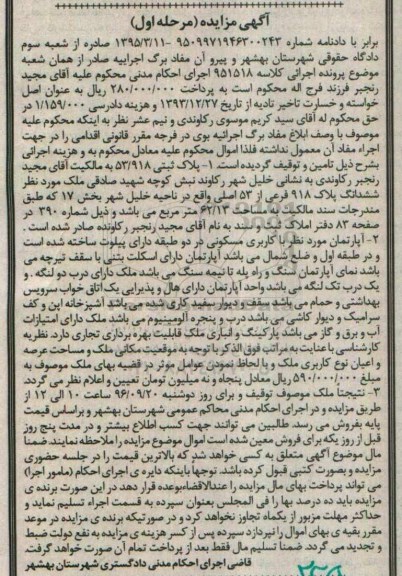 آگهی مزایده (مرحله اول)
برابر با دادنامه شماره ۹۵۰۹۹۷۱۹۴۶۳۰۰۲۴۳ -۱۳۹۵/۳/۱۱ صادره از شعبه سوم
دادگاه حقوقی شهرستان بهشهر و پیرو آن مفاد برگ اجراییه صادر از همان شعبه
موضوع پرونده اجرائی کلاسه ۹۵۱۵۱۸ اجرای احکام مدنی محکوم علیه آقای مجید
رنجبر فرزند فرج اله محکوم است به پرداخت ۲۸۰/۰۰۰/۰۰۰ ریال به عنوان اصل
خواسته و خسارت تاخیر تادیه از تاریخ ۱۳۹۳/۱۲/۲۷ و هزینه دادرسی ۱/۱۵۹/۰۰۰ در
حق محکوم له آقای سید کریم موسوی رکاوندی و نیم عشر نظر به اینکه محکوم علیه
موصوف با وصف ابلاغ مفاد برگ اجرائیه بوی در فرجه مقرر قانونی اقدامی را در جهت
اجراء مفاد آن معمول نداشته فلذا اموال محکوم علیه معادل محکوم به و هزینه اجرائی
بشرح ذیل تامین و توقیف گردیده است. ۱- پلاک ثبتی ۵۳/۹۱۸ به مالکیت آقای مجید
رنجبر رکاوندی به نشانی خلیل شهر رکاوند نبش کوچه شهید صادقی ملک مورد نظر
ششدانگ پلاک ۹۱۸ فرعی از ۵۳ اصلی واقع در ناحیه خلیل شهر بخش ۱۷ که طبق
مندرجات سند مالکیت ۶۲/۱۳ متر مربع می باشد و ذیل شماره ۳۹۰ در
صفحه ۸۳ دفتر املاک سند به نام آقای مجید رنجبر رکاوندی صادر شده است .
۲- آپارتمان مورد نظر با کاربری مسکونی در دو طبقه دارای پیلوت ساخته شده است
و در طبقه اول و ضلع شمال می باشد آپارتمان دارای اسکلت بتنی با سقف تیرچه می
باشد نمای آپارتمان سنگ و راه پله تا نیمه سنگ می باشد ملک دارای درب دو لنگه . و
یک درب تک لنگه می باشد واحد آپارتمان دارای هال و پذیرایی یک اتاق خواب سرویس
بهداشتی و حمام می باشد سقف و دیوار سفید کاری شده می باشد آشپزخانه اپن و کف
سرامیک و دیوار کاشی می باشد درب و پنجره آلومینیوم می باشد ملک دارای امتیازات
آب و برق و گاز می باشد پارکینگ و انباری ملک قابلیت بهره برداری تجاری دارد. نظریه
کارشناسی با عنایت به مراتب فوق الذکر با توجه به موقعیت مکانی ملک و مساحت عرصه
و اعیان نوع کاربری ملک و با لحاظ نمودن عوامل موثر در قضیه بهای ملک موصوف به
مبلغ ۵۹۰/۰۰۰/۰۰۰ ریال معادل پنجاه و نه میلیون تومان تعیین و اعلام نظر می گردد.
۳- نتیجتا ملک موصوف توقیف و برای روز دوشنبه ۹۶/۰۹/۲۰ ساعت ۱۰ الی ۱۲ از
طریق مزایده و در اجرای احکام مدنی محاکم عمومی شهرستان بهشهر و براساس قیمت
پایه بفروش می رسد. طالبین می توانند جهت کسب اطلاع بیشتر و در مدت پنج روز
قبل از روز یکه برای فروش معین شده است اموال موضوع مزایده را ملاحظه نمایند. ضمنا
مال موضوع آگهی متعلق به کسی خواهد شد که بالاترین قیمت را در جلسه حضوری
مزایده و بصورت کتبی قبول کرده باشد. توجها باینکه دایره ی اجرای احکام (مامور اجرا)
می تواند پرداخت بهای مال مزایده را عندالاقتضاء بوعده قرار دهد در این صورت برنده ی
مزایده باید ده درصد بها را فی المجلس بعنوان سپرده به قسمت اجراء تسلیم نماید و
حداکثر مهلت مزبور از یکماه تجاوز نخواهد کرد و در صورتیکه برنده ی مزایده در موعد
مقرر بقیه ی بهای اموال را نپردازد سپرده پس از کسر هزینه ی مزایده به نفع دولت ضبط
و تجدید می گردد. ضمنا تسلیم مال فقط بعد از پرداخت تمام آن صورت خواهد گرفت.
قاضی اجرای احکام مدنی دادگستری شهرستان بهشهر